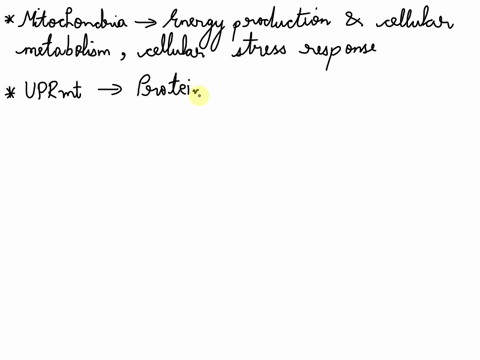 * Mitochondria → Energy production & cellular
metabolism, cellular stress response
* UPRmt → Protein